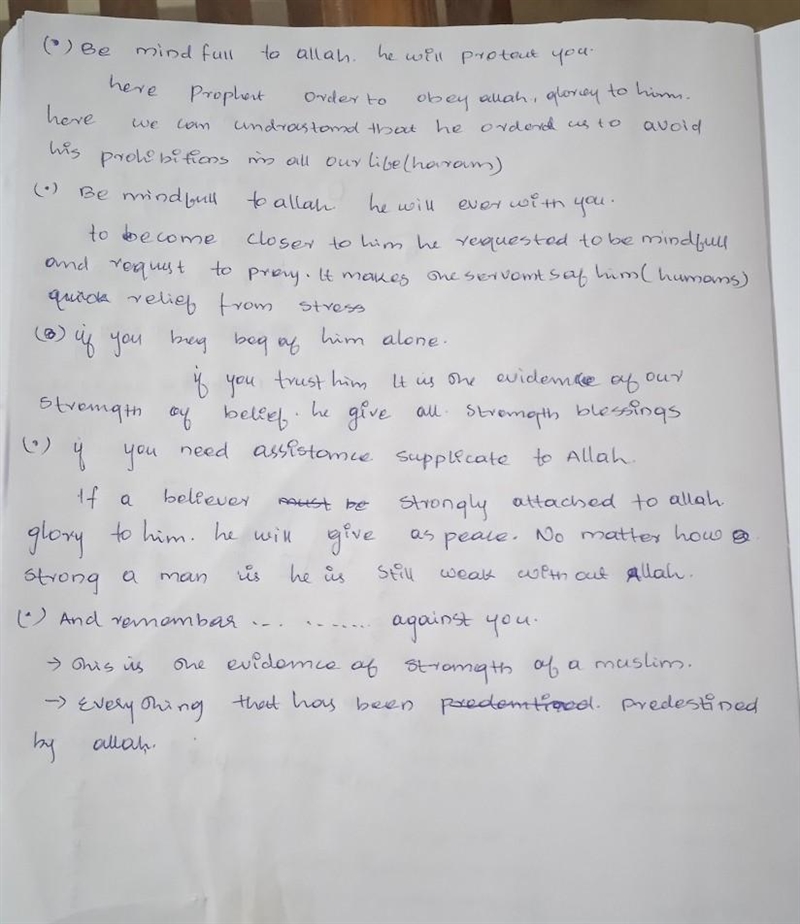 (•) Be mind full to allah. he will protect you.
here Prophet order to obey allah, glorey to him.
here we can undrastand that he orderd us to avoid
his prohibitions in all our life (haram)
(•) Be mindfull to allah he will ever with you.
to become closer to him he requested to be mindfull
and request to pray. It makes the servants of him (humans)
quick relief from stress
(•) if you beg beg of him alone.
if you trust him It is the evidence of our
strength of belief. he give all strength blessings
(•) if you need assistance supplicate to Allah.
If a believer must be strongly attached to allah
glory to him. he will give as peace. No matter how
strong a man is he is still weak without Allah.
(•) And remember ... ....... against you.
→ this is the evidence of strength of a muslim.
→ Every thing that has been predentined. predestined
by allah.